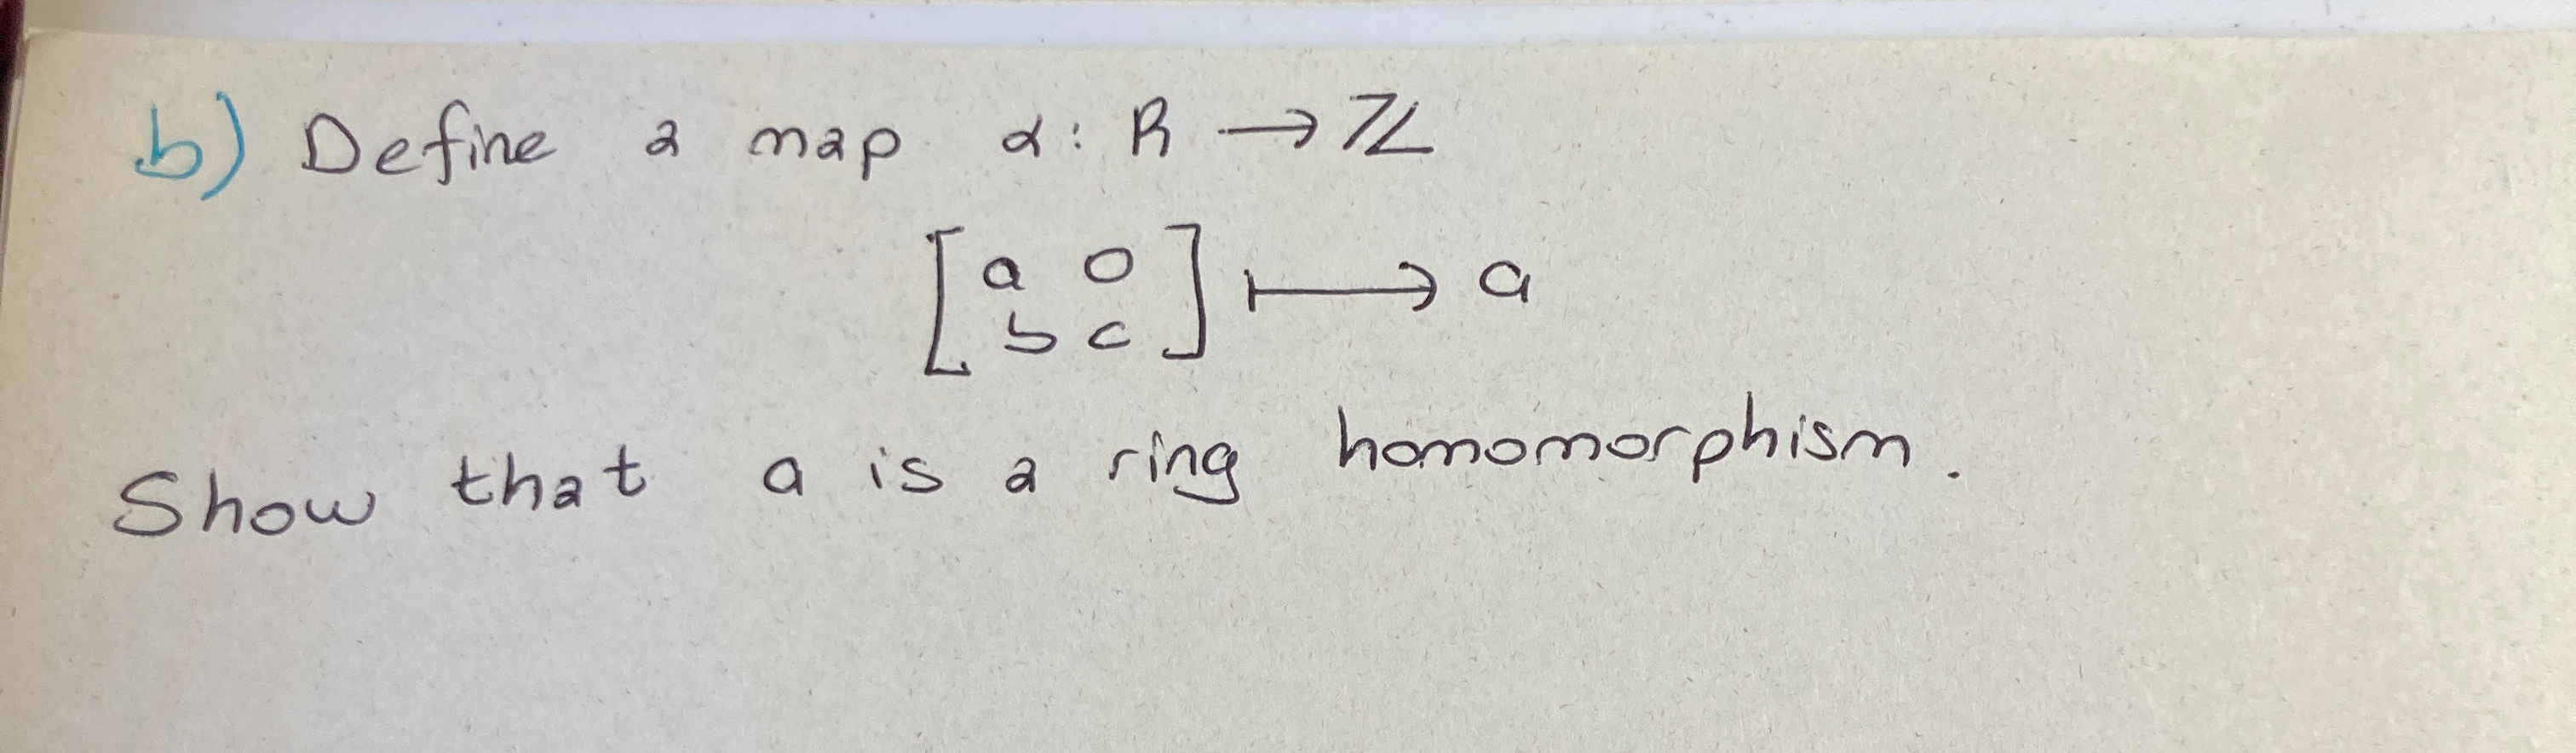 b) Define a map α: R → ℤ
[ a 0
b c ] ↦ a
Show that a is a ring homomorphism.